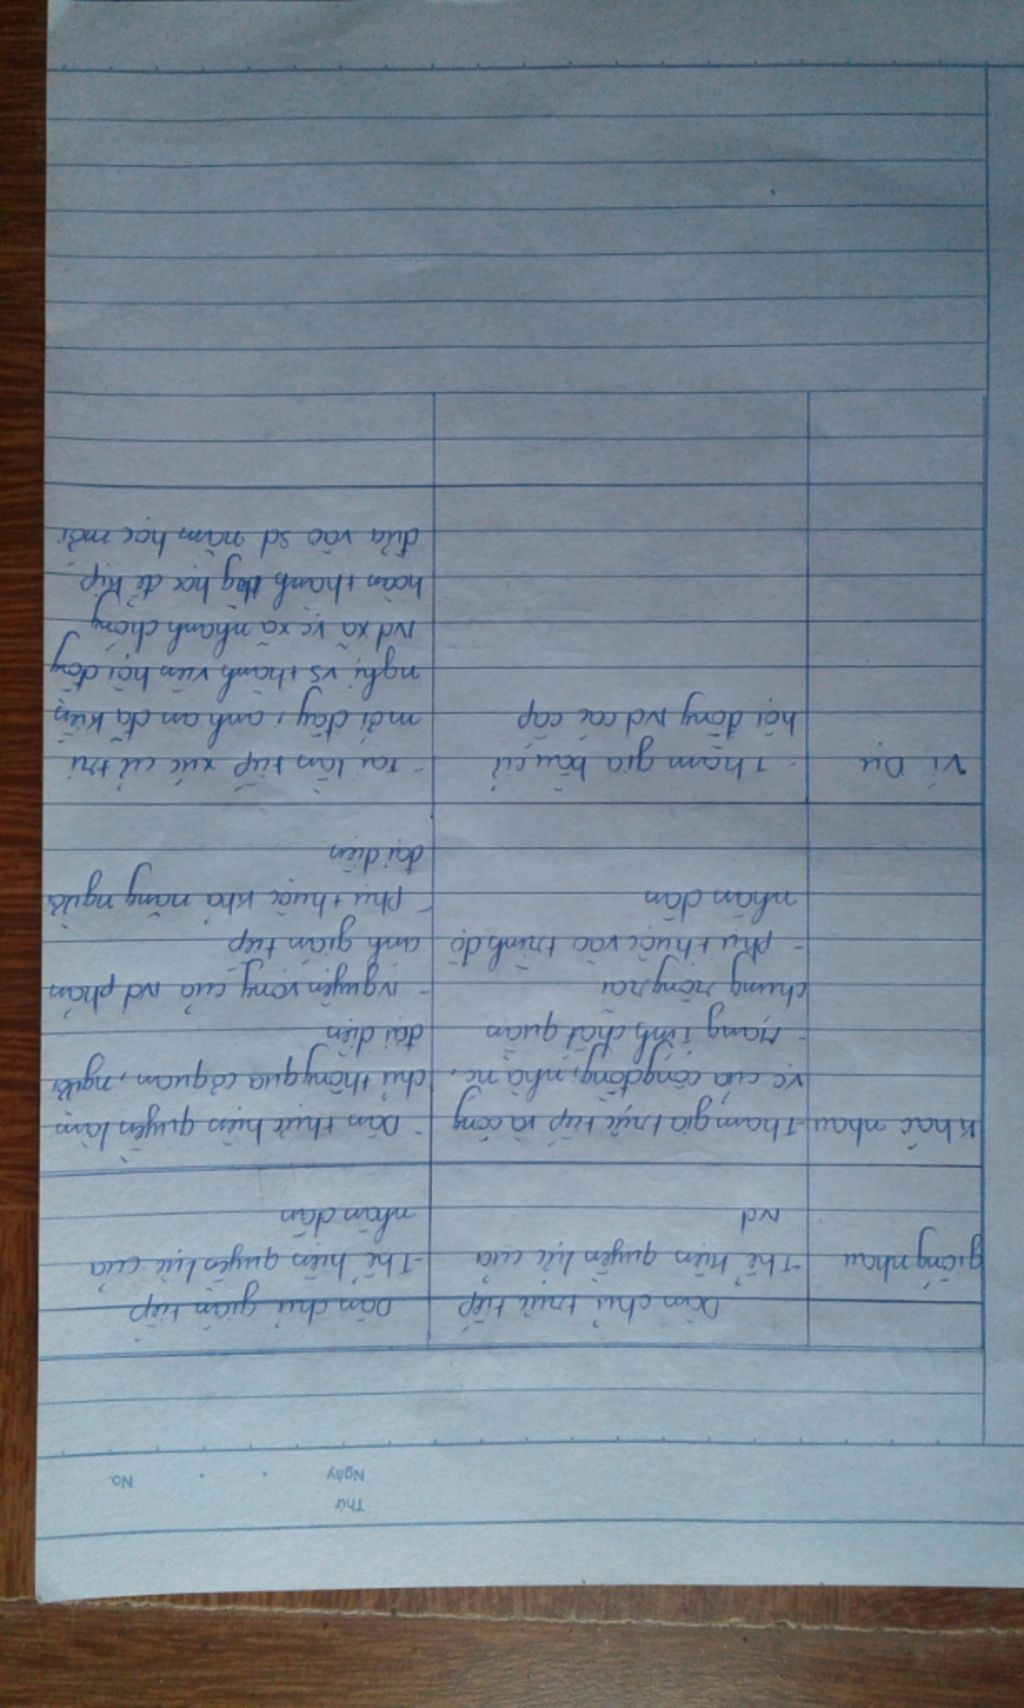 Thứ
Ngày
No.
Dân chủ trực tiếp
Dân chủ gián tiếp
giống nhau
-Thể hiện quyền lực của
nd
-Thể hiện quyền lực của
nhân dân
Khác nhau
-Tham gia trực tiếp và công
vc của cộng đồng, nhà nc,
- Mang tính chất quần
chúng rộng rãi
- phụ thuộc vào trình độ
nhân dân
- Dân thực hiện quyền làm
chủ thông qua cơ quan, người
đại diện
- Nguyện vọng của nd phản
ánh gián tiếp
- Phụ thuộc khả năng người
đại diện
Ví Dụ
- Tham gia bầu cử
hội đồng nd các cấp
- Tại lần tiếp xúc cử tri
mới đây, anh an đã kiến
nghị vs thành viên hội đồng
nd xã vc xã nhanh chóng
hoàn thành học để kịp
đưa vào sd năm học mới